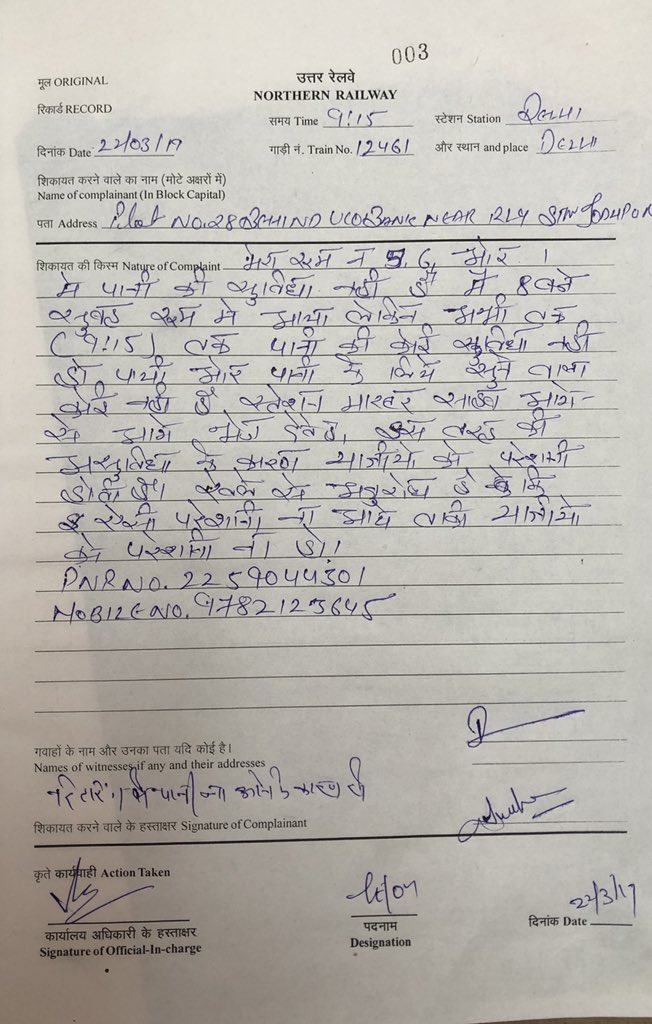 003
मूल ORIGINAL
उत्तर रेलवे
रिकार्ड RECORD
NORTHERN RAILWAY
समय Time 9:15 स्टेशन Station DELHI
दिनांक Date 22/03/19 गाड़ी नं. Train No. 12461 और स्थान and place DELHI
शिकायत करने वाले का नाम (मोटे अक्षरों में)
Name of complainant (In Block Capital)
पता Address Plot NO. 28 BEHIND UCO BANK NEAR RLY STN JODHPUR
शिकायत की किस्म Nature of Complaint मेरा रूम न 5, 6 ओर ।
मे पानी की सुविधा नही है मै 8 बजे
सुबह रूम मे आया लेकिन अभी तक
(9:15) तक पानी की कोई सुविधा नही
हो पायी ओर पानी के लिये सुनने वाला
कोई नही है, स्टेशन मास्टर साहब आगे-
से आगे भेज देवे, इस तरह की
असुविधा के कारण यात्रीयो को परेशानी
होती है। से अनुरोध है कि
ऐसी परेशानी ना आये ताकी यात्रीयो
को परेशानी ना हो।
PNR NO. 2259044301
MOBILE NO. 9782123645
गवाहों के नाम और उनका पता यदि कोई है।
Names of witnesses if any and their addresses
पानी ना के कारण
शिकायत करने वाले के हस्ताक्षर Signature of Complainant
कृते कार्यवाही Action Taken
22/3/19
कार्यालय अधिकारी के हस्ताक्षर पदनाम दिनांक Date
Signature of Official-In-charge Designation